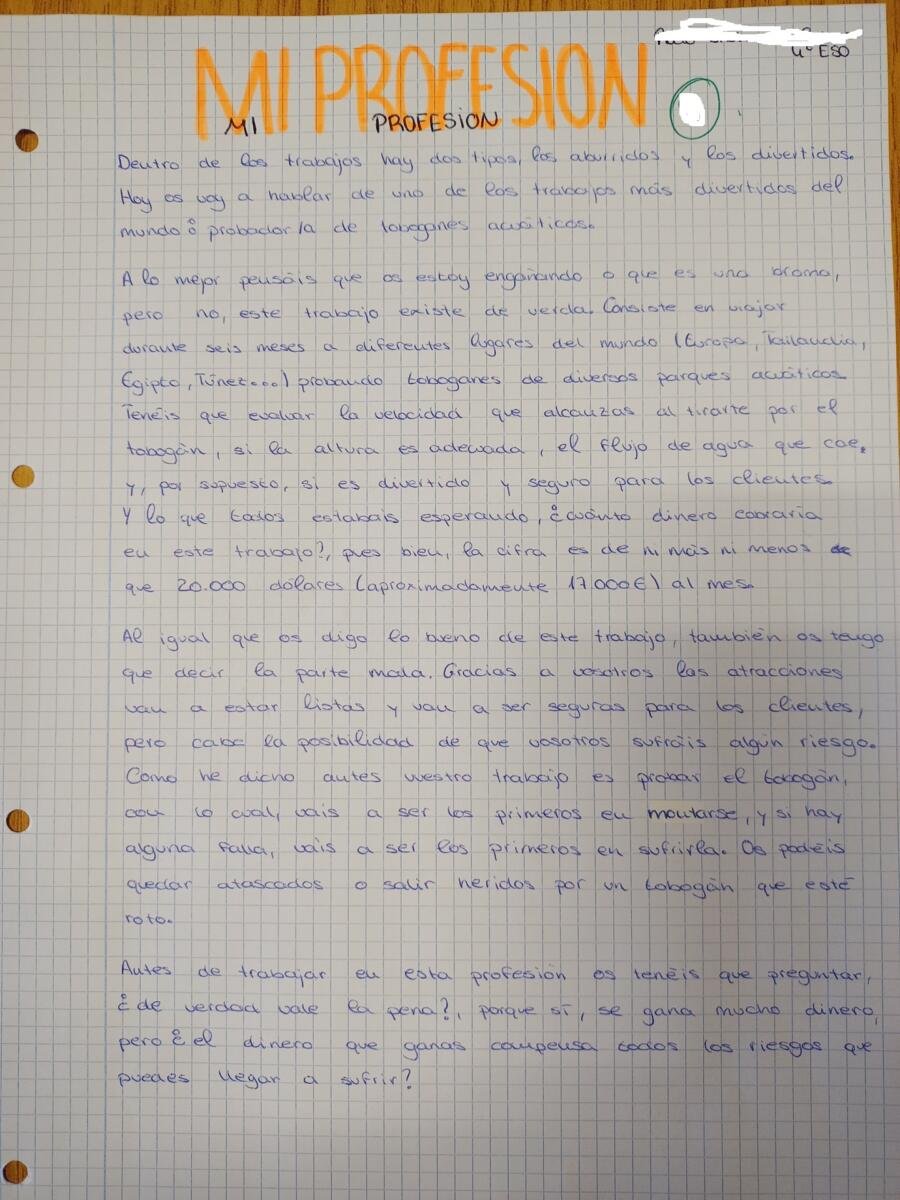 4º ESO
MI PROFESION
MI PROFESION
Dentro de los trabajos hay dos tipos, los aburridos y los divertidos.
Hoy os voy a hablar de uno de los trabajos más divertidos del
mundo: probador/a de toboganes acuáticos.
A lo mejor pensáis que os estoy engañando o que es una broma,
pero no, este trabajo existe de verda. Consiste en viajar
durante seis meses a diferentes lugares del mundo (Europa, Tailandia,
Egipto, Túnez...) probando toboganes de diversos parques acuáticos.
Tenéis que evaluar la velocidad que alcanzas al tirarte por el
tobogán, si la altura es adecuada, el flujo de agua que cae,
y, por supuesto, si es divertido y seguro para los clientes.
Y lo que todos estabais esperando, ¿cuánto dinero cobraría
en este trabajo?, pues bien, la cifra es de ni más ni menos
que 20.000 dólares (aproximadamente 17000€) al mes.
Al igual que os digo lo bueno de este trabajo, también os tengo
que decir la parte mala. Gracias a vosotros las atracciones
van a estar listas y van a ser seguras para los clientes,
pero cabe la posibilidad de que vosotros sufráis algún riesgo.
Como he dicho antes vuestro trabajo es probar el tobogán,
con lo cual, vais a ser los primeros en montarse, y si hay
alguna falla, vais a ser los primeros en sufrirla. Os podéis
quedar atascados o salir heridos por un tobogán que esté
roto.
Antes de trabajar en esta profesión os tenéis que preguntar,
¿de verdad vale la pena?, porque sí, se gana mucho dinero,
pero ¿el dinero que ganas compensa todos los riesgos que
puedes llegar a sufrir?